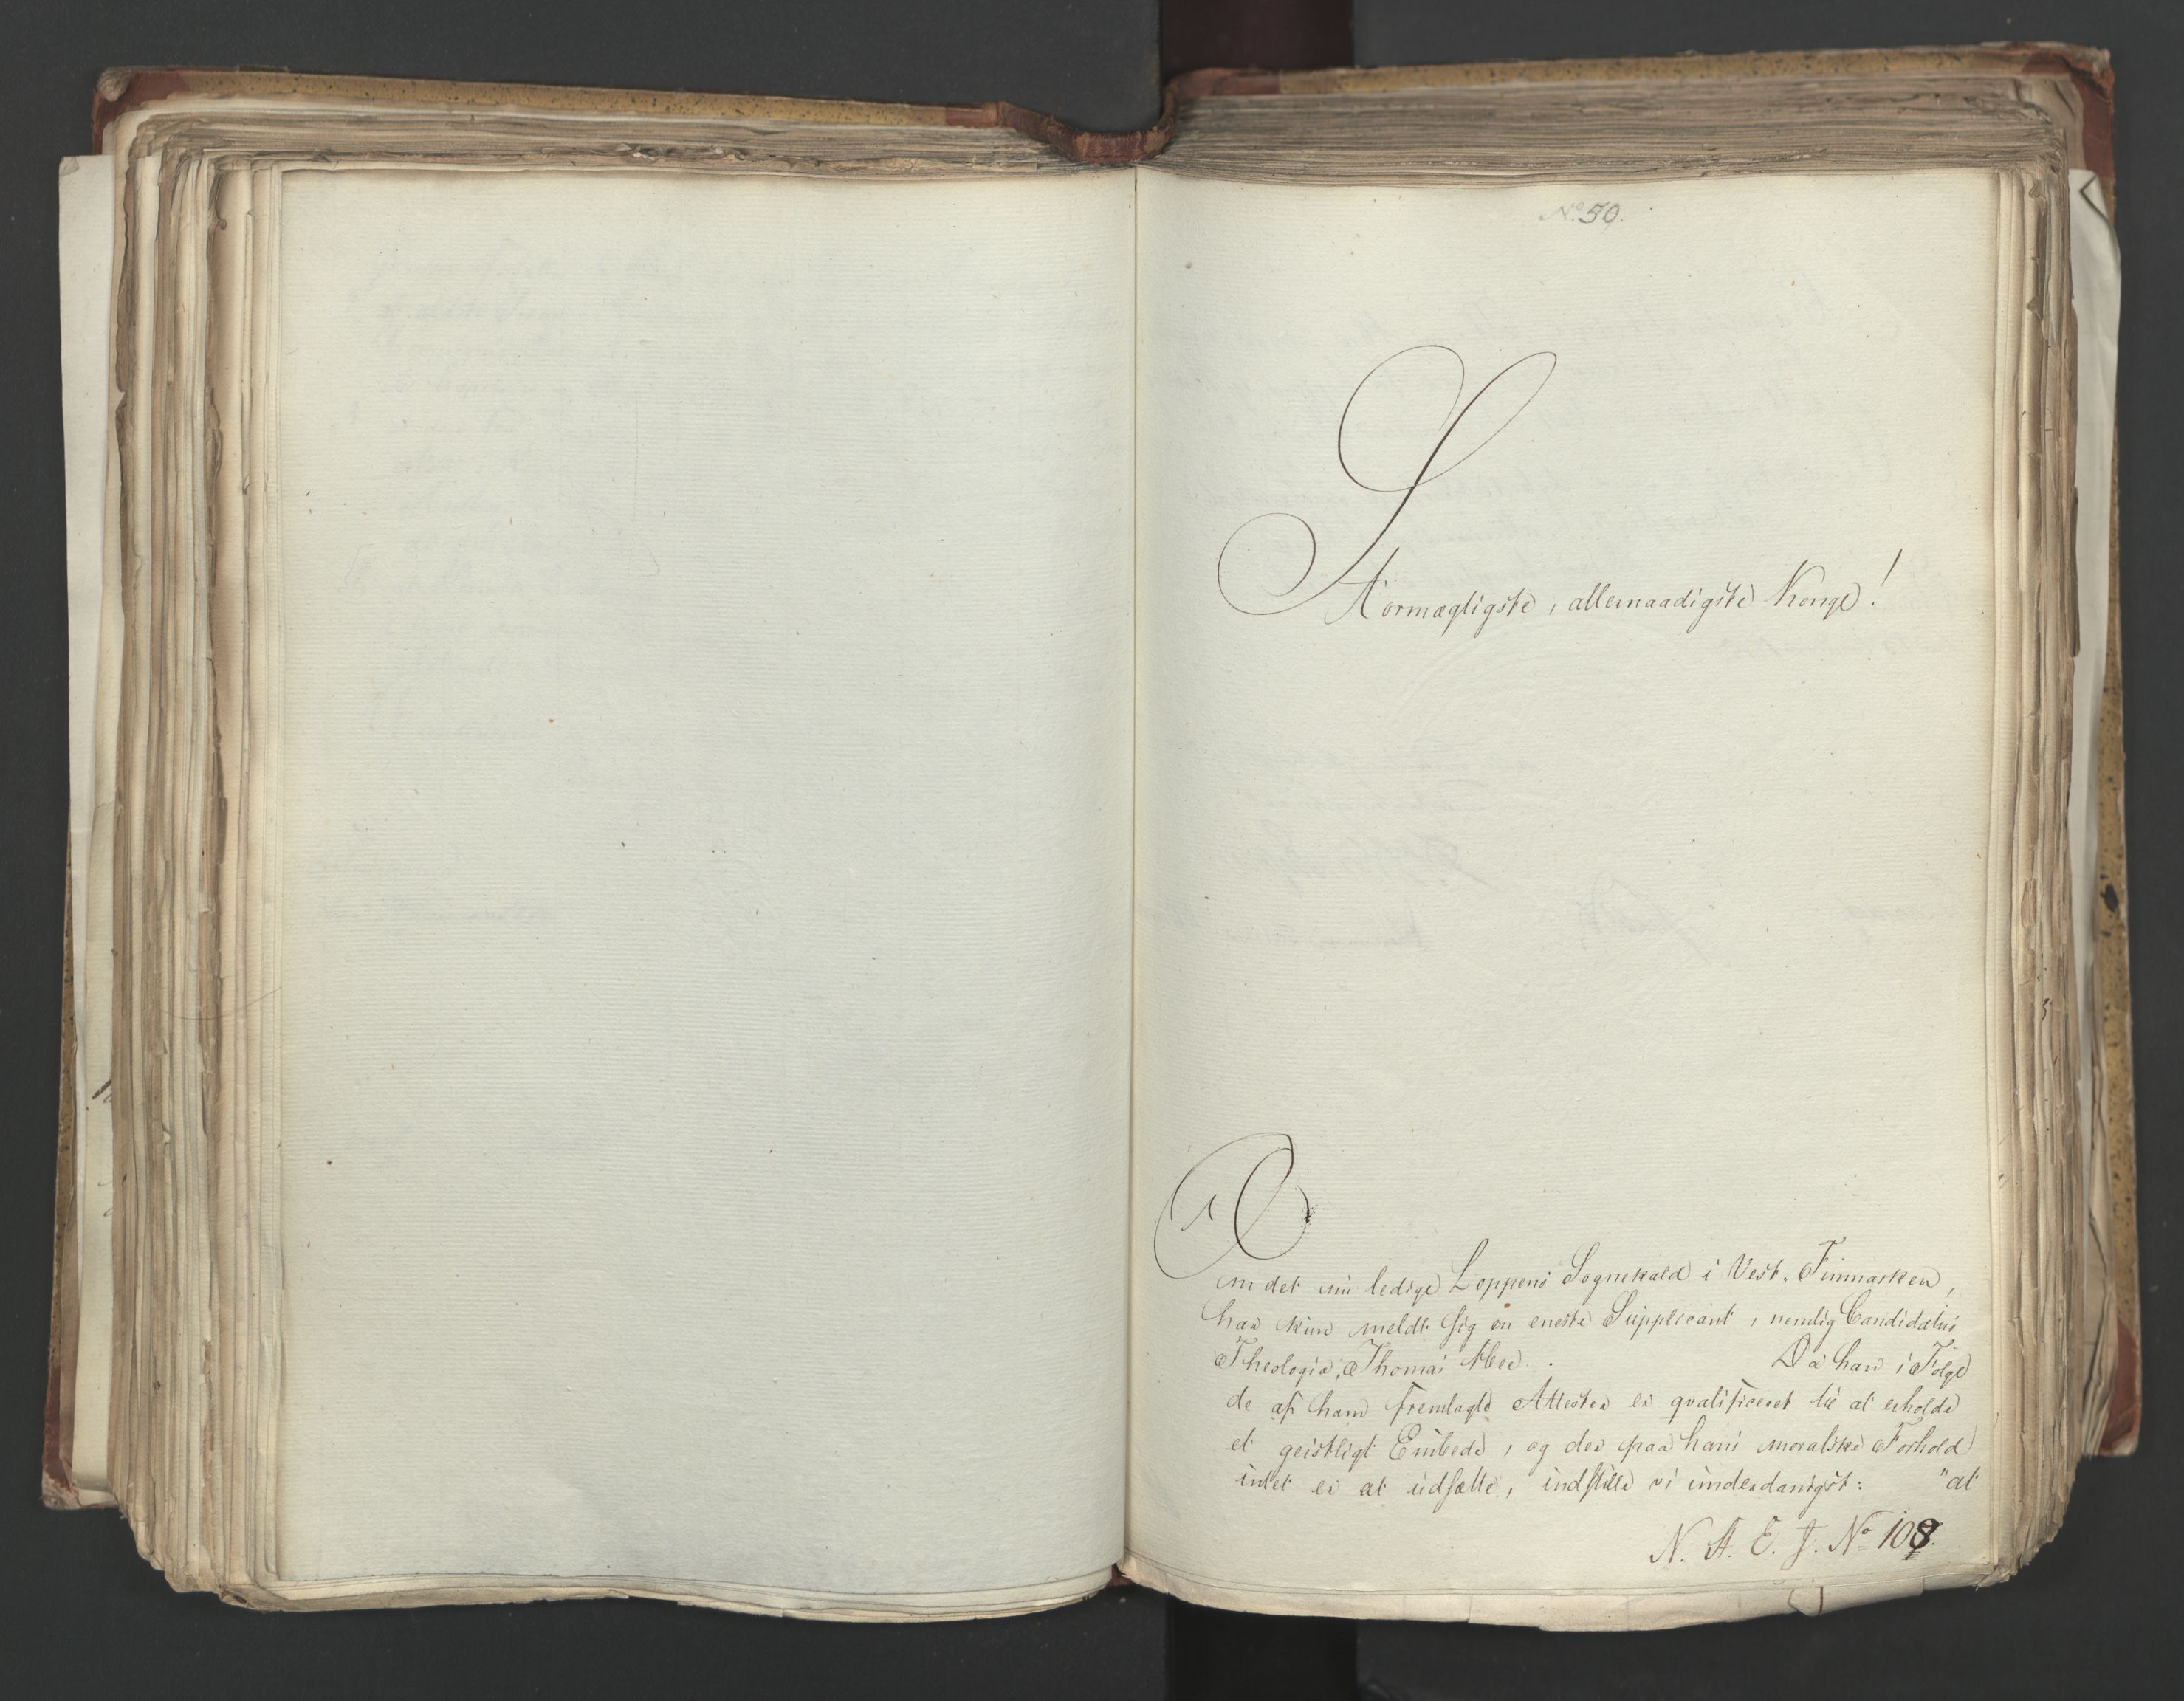 No. 50.
Stormægtigste, allernaadigste Konge!
Om det nu ledige Loppens Sognekald i Vest-Finmarken,
har kun meldt sig en eneste Supplicant, nemlig Candidatus
Theologiæ, Thomas Ber. Da han i Følge
de af ham fremlagte Attester er qvalificeret til at erholde
et geistligt Embede, og der paa hans moralske Forhold
intet er at udsætte, indstille vi underdanigst: "at
N. A. E. J. No 108.